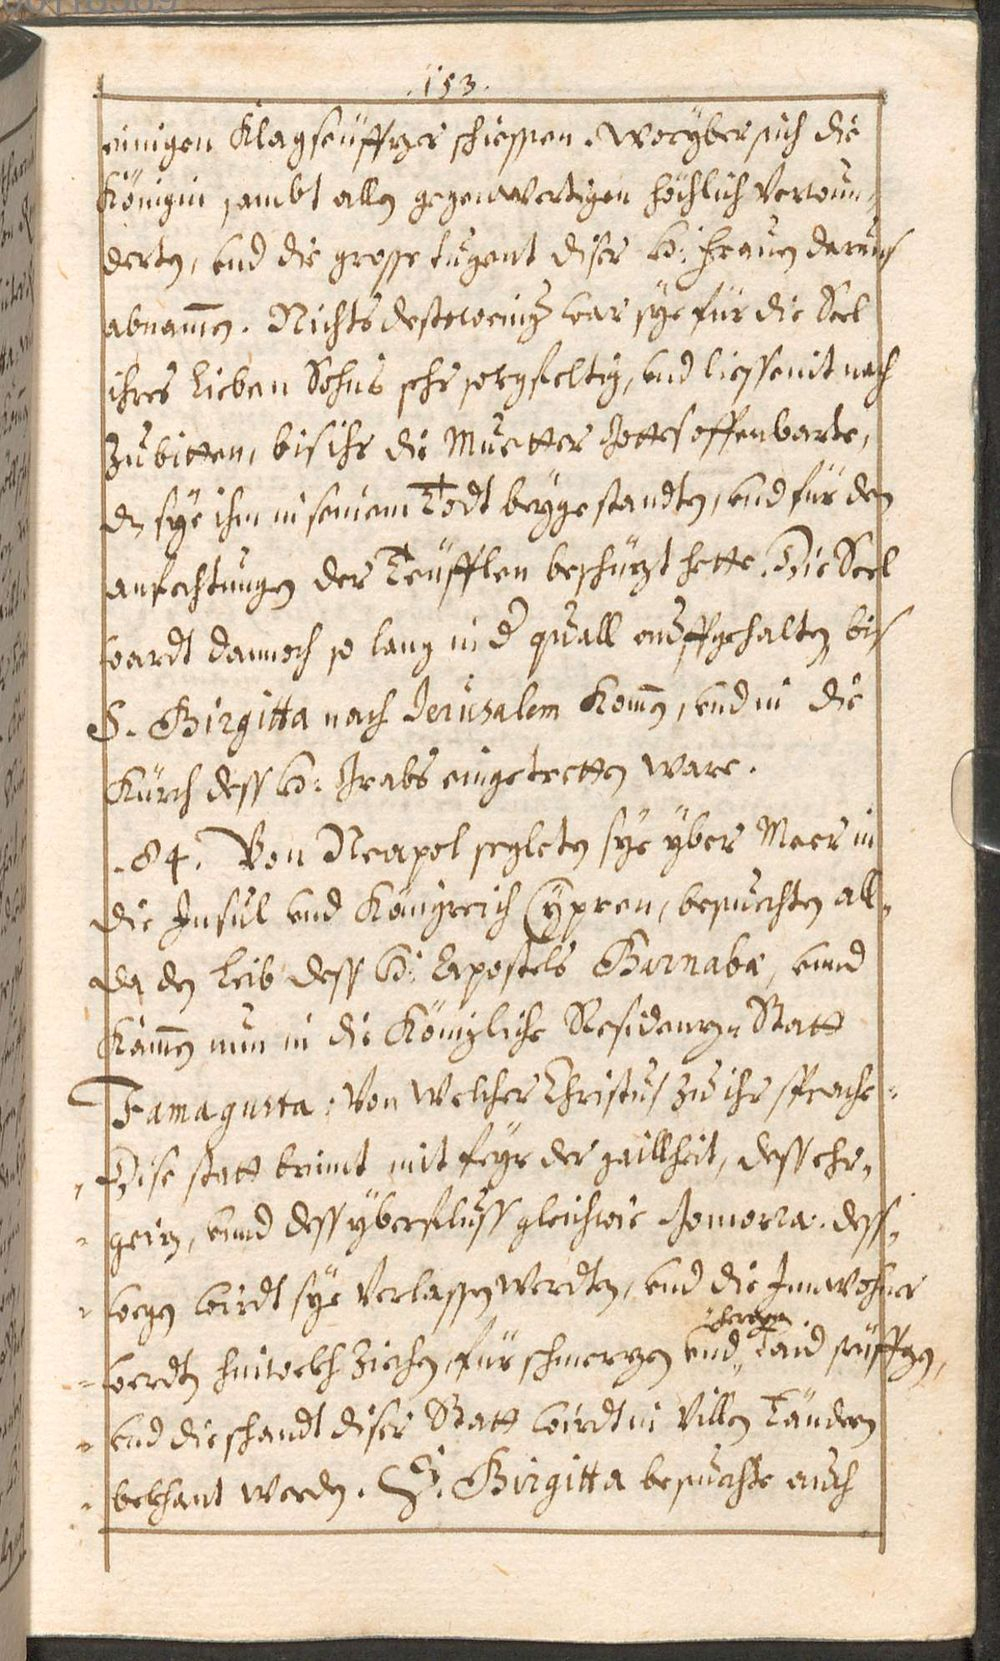 .153.
einigen Klagseüffzer schiessen. Woryber sich die
Königin sambt allen gegenwertigen höchlich verwun„
derten, und die grosse tugent diser H: frauen daraus
abnamen. Nichts destowenig war sye für die Seel
ihres lieben Sohns sehr sorgfeltig, und liesse nit nach
zu bitten, bis ihr die Muetter Gottes offenbarte,
dz sye ihm in seinem Todt beygestandten, und für den
anfechtungen der Teüfflen beschüzt hette. Die Seel
wardt dannoch so lang in d' quall auffgehalten bis
S. Birgitta nach Jerusalem komen, und in die
Kürch dess H: Grabs eingetretten ware.
.84. Von Neapol segleten sye yber Meer in
die Insul und Königreich Cypren, besuechten all„
da den Leib dess H: Apostels Barnabæ, unnd
kamen nun in die Königliche Residenz„ Statt
Famagusta: von welcher Christus zu ihr sprache:
„ Dise statt brint mit feyr der gaillheit, dess ehr„
„ geiz, unnd dess yberfluss gleichwie Gomorra. dess„
„ wegen wirdt sye verlassen werdten, und die Innwohner
„ werdten hinwekh ziechen, für schmerzen und„ Laid seüffzen,
„ und die schandt diser Statt wirdt in villen Ländern
„ bekhant werden. S. Birgitta besuechte auch